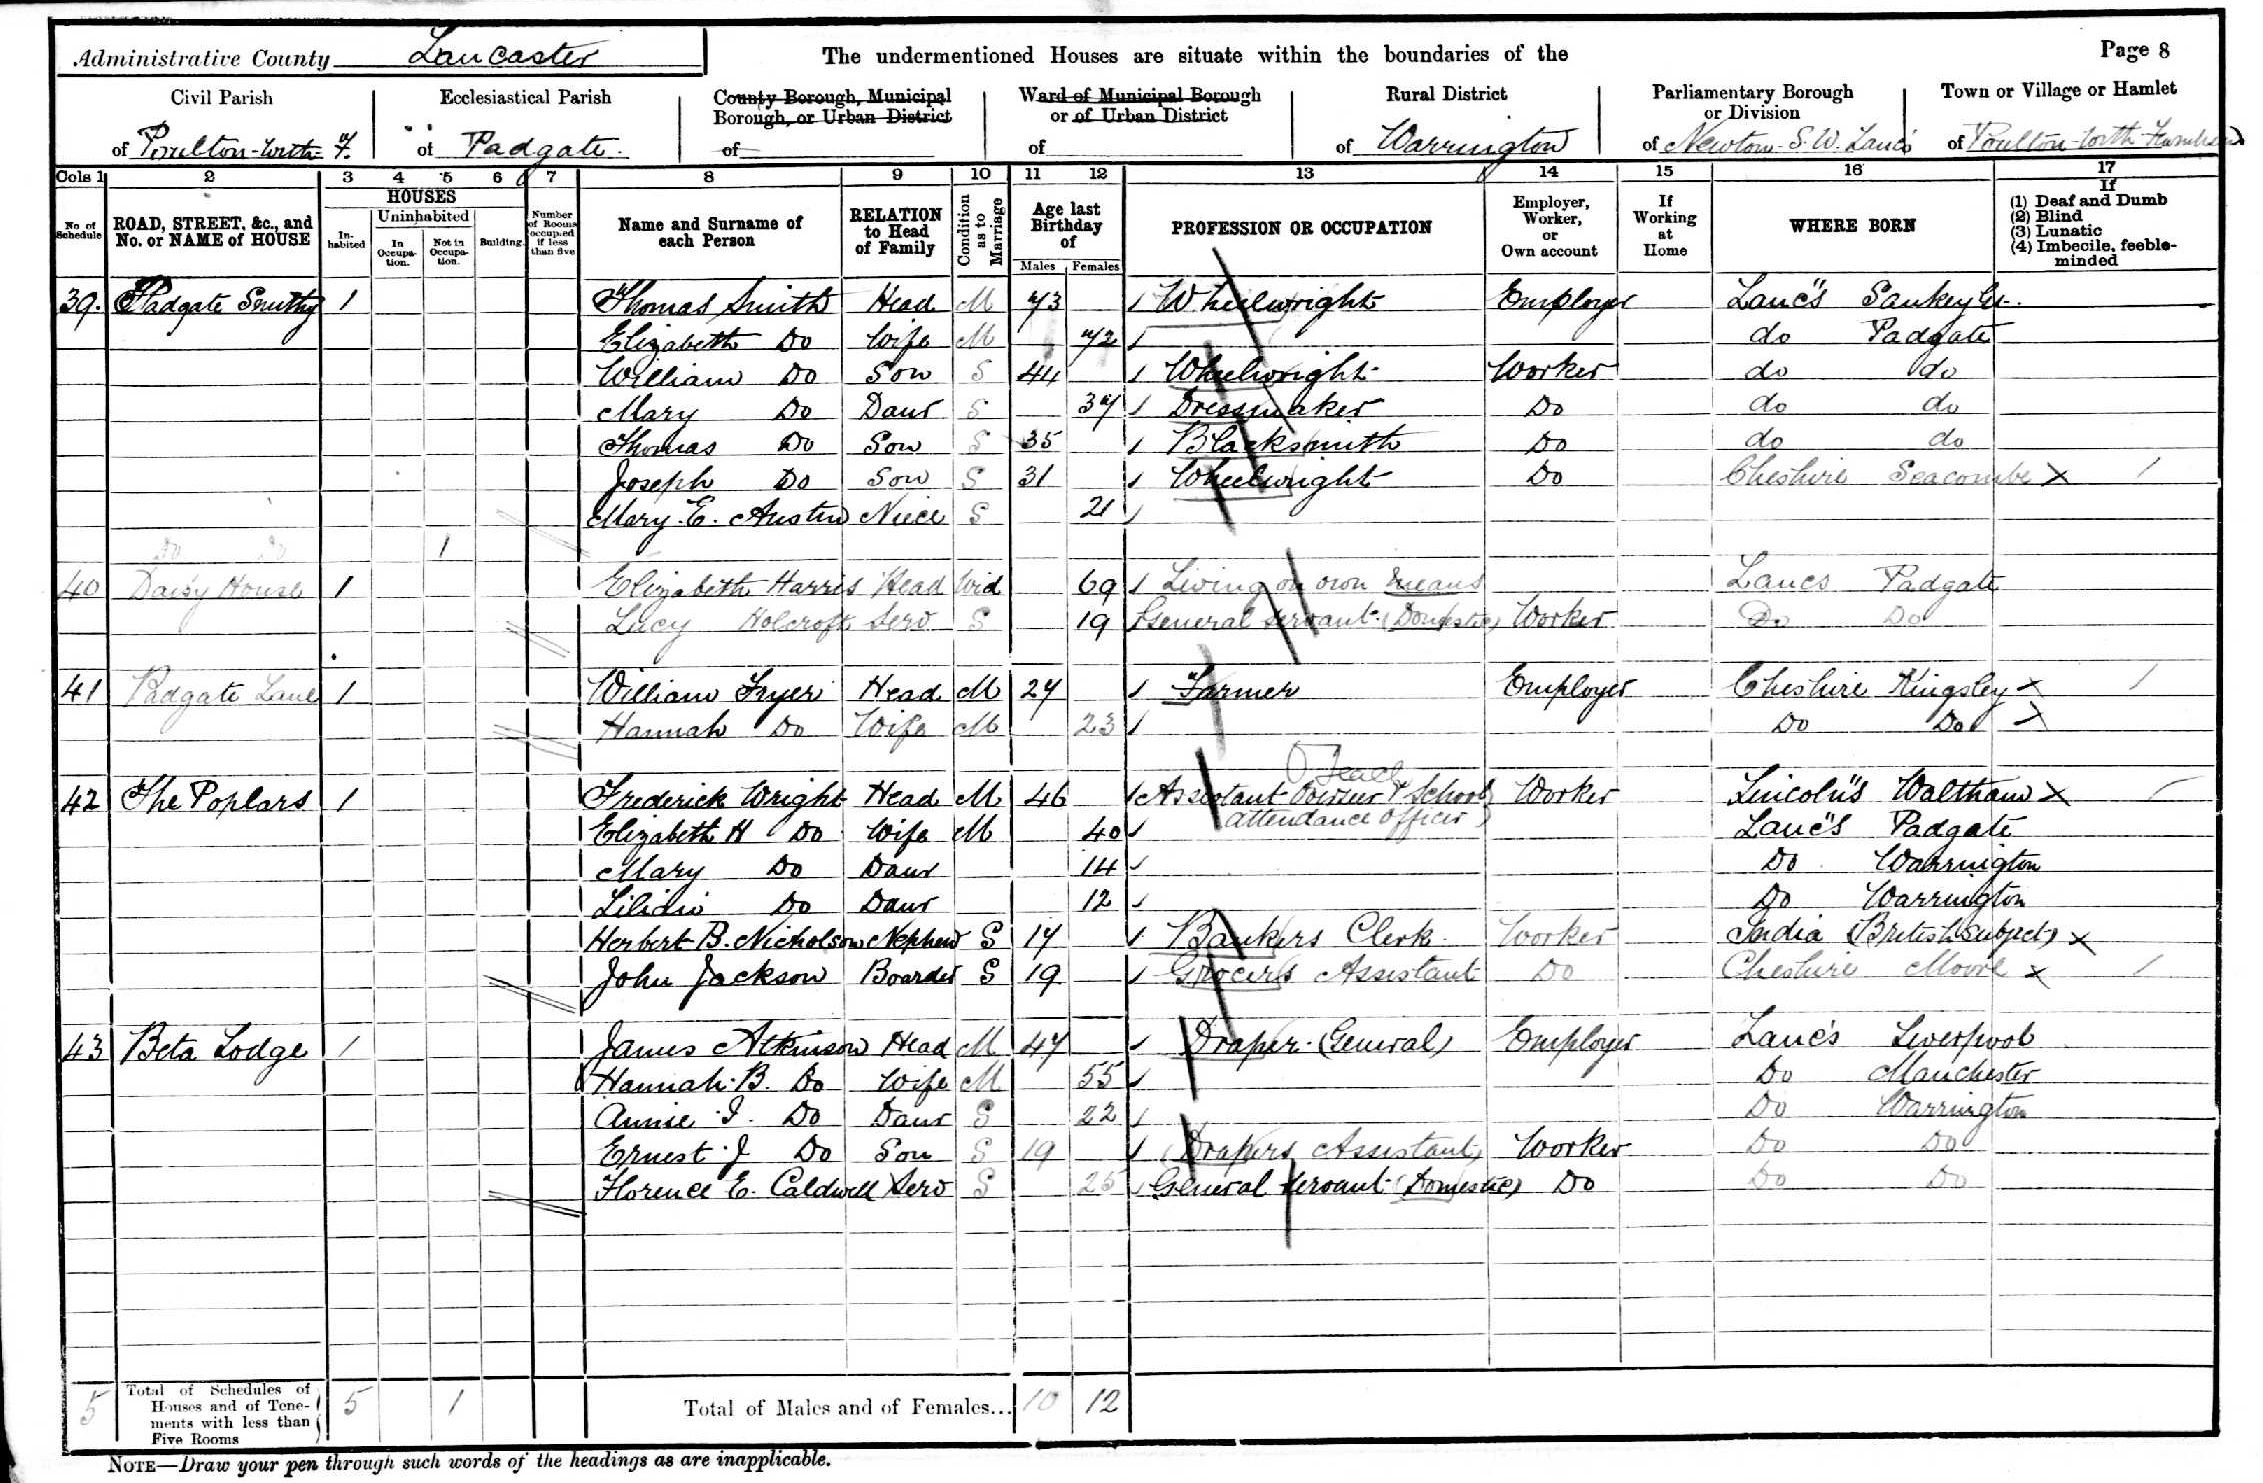 Page 8
Administrative County Lancaster The undermentioned Houses are situate within the boundaries of the
Civil Parish Ecclesiastical Parish County Borough, Municipal Borough, or Urban District Ward of Municipal Borough or of Urban District Rural District Parliamentary Borough or Division Town or Village or Hamlet
of Poulton-with-F. of Padgate. of of of Warrington of Newton-S.W. Lancs of Poulton-with-Fearnhead
Cols 1 2 3 4 5 6 7 8 9 10 11 12 13 14 15 16 17
No. of Schedule ROAD, STREET, &c., and No. or NAME of HOUSE HOUSES Inhabited Uninhabited In Occupation. Not in Occupation. Building. Number of Rooms occupied if less than five Name and Surname of each Person RELATION to Head of Family Condition as to Marriage Age last Birthday of Males Females PROFESSION OR OCCUPATION Employer, Worker, or Own account If Working at Home WHERE BORN If (1) Deaf and Dumb (2) Blind (3) Lunatic (4) Imbecile, feeble-minded
39. Padgate Smithy 1 Thomas Smith Head M 73 Wheelwright Employer Lanc's Sankey Gt.
Elizabeth Do Wife M 72 do Padgate
William Do Son S 44 Wheelwright Worker do do
Mary Do Daur S 37 Dressmaker Do do do
Thomas Do Son S 35 Blacksmith Do do do
Joseph Do Son S 31 Wheelwright Do Cheshire Seacombe X 1
Mary. E. Austin Niece S 21
Do Do 1
40 Daisy House 1 Elizabeth Harris Head Wid 69 Living on own means Lancs Padgate
Lucy Holcroft Serv S 19 General Servant (Domestic) Worker Do Do
41 Padgate Lane 1 William Fryer Head M 27 Farmer Employer Cheshire Kingsley X 1
Hannah Do Wife M 23 Do Do X
42 The Poplars 1 Frederick Wright Head M 46 Assistant Overseer & School Worker Lincoln's Waltham X
attendance officer
Elizabeth H Do Wife M 40 Lanc's Padgate
Mary Do Daur 14 Do Warrington
Do Daur 12 Do Warrington
Herbert B. Nicholson Nephew S 17 Bankers Clerk Worker India (British Subject) X
John Jackson Boarder S 19 Grocer's Assistant Do Cheshire Moore X 1
43 Beta Lodge 1 James Atkinson Head M 47 Draper (General) Employer Lanc's Liverpool
Hannah. B. Do Wife M 55 Do Manchester
Annie. I. Do Daur S 22 Do Warrington
Ernest. J Do Son S 19 (Drapers Assistant) Worker Do Do
Florence E. Caldwell Serv S 25 General Servant (Domestic) Do Do Do
5 Total of Schedules of Houses and of Tenements with less than Five Rooms 5 1 Total of Males and of Females... 10 12
NOTE—Draw your pen through such words of the headings as are inapplicable.